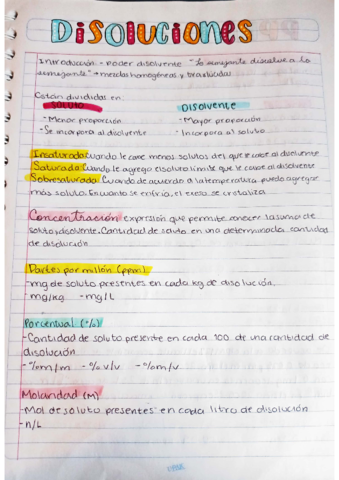 DiSoluciones
Introducción - poder disolvente "Lo semejante disuelve a lo
semejante" → mezclas homogéneas y translúcidas
Están divididas en:
SOLUTO DISOLVENTE
-Menor proporción -Mayor proporción
-Se incorpora al disolvente -Incorpora al soluto
Insaturada cuando le cabe menos solutos del que le cabe al disolvente
Saturada Cuando le agrego el soluto límite que le cabe al disolvente
Sobresaturada Cuando de acuerdo a la temperatura puedo agregar
más soluto. En cuanto se enfría, el exceso se cristaliza
Concentración expresión que permite conocer la suma de
soluto y disolvente. Cantidad de soluto en una determinada cantidad
de disolución
Partes por millón (ppm)
-mg de soluto presentes en cada kg de disolución.
-mg/kg -mg/L
Porcentual (%)
-Cantidad de soluto presente en cada 100 de una cantidad de
disolución
-%m/m -%v/v -%m/v
Molaridad (M)
-Mol de soluto presentes en cada litro de disolución
-n/L